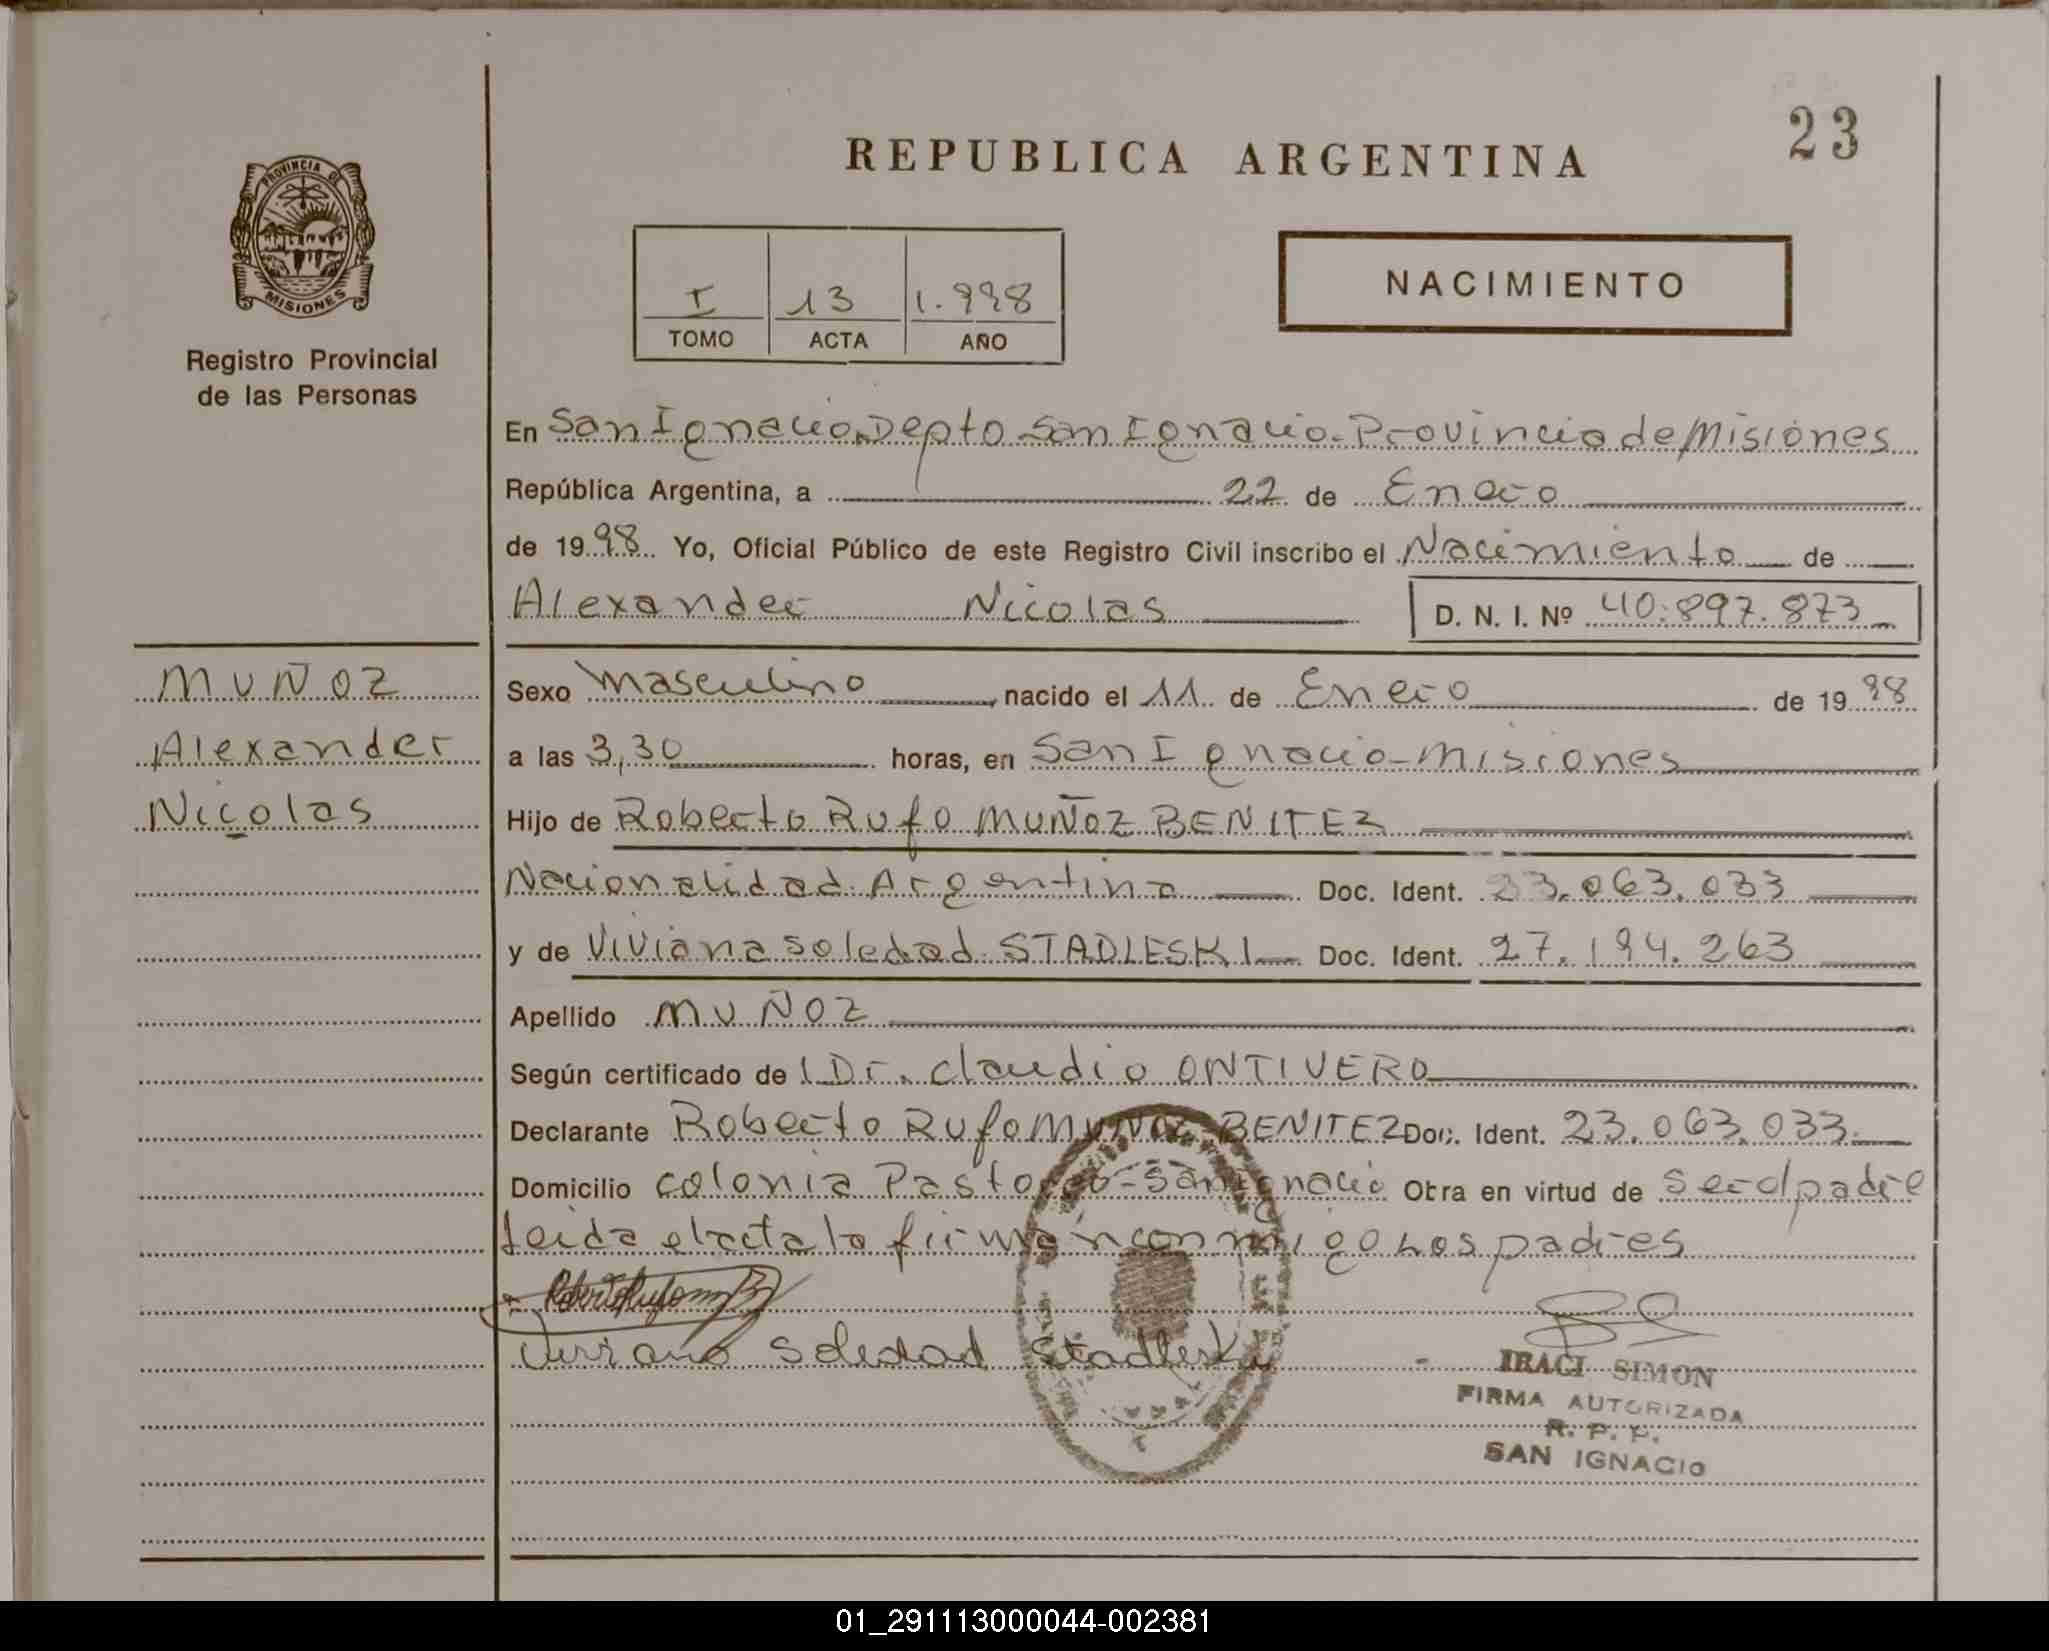 23
REPUBLICA ARGENTINA
PROVINCIA DE
MISIONES
Registro Provincial
de las Personas
I 13 1.998
TOMO ACTA AÑO
NACIMIENTO
En San Ignacio Depto San Ignacio-Provincia de Misiones
República Argentina, a 22 de Enero
de 1998 Yo, Oficial Público de este Registro Civil inscribo el Nacimiento de
Alexander Nicolas D. N. I. Nº 40.897.873
MUÑOZ
Alexander
Nicolas
Sexo Masculino nacido el 11 de Enero de 1998
a las 3,30 horas, en San Ignacio-Misiones
Hijo de Roberto Rufo MUÑOZ BENITEZ
Nacionalidad Argentina Doc. Ident. 23.063.033
y de Viviana Soledad STADLESKI Doc. Ident. 27.194.263
Apellido MUÑOZ
Según certificado del Dr. Claudio ONTIVERO
Declarante Roberto Rufo MUÑOZ BENITEZ Doc. Ident. 23.063.033
Domicilio Colonia Pastoreo-San Ignacio Obra en virtud de ser el padre
Leida el acta la firman conmigo Los padres
Soledad Stadleski
IRACI SIMON
FIRMA AUTORIZADA
R. P. P.
SAN IGNACIO
01_291113000044-002381